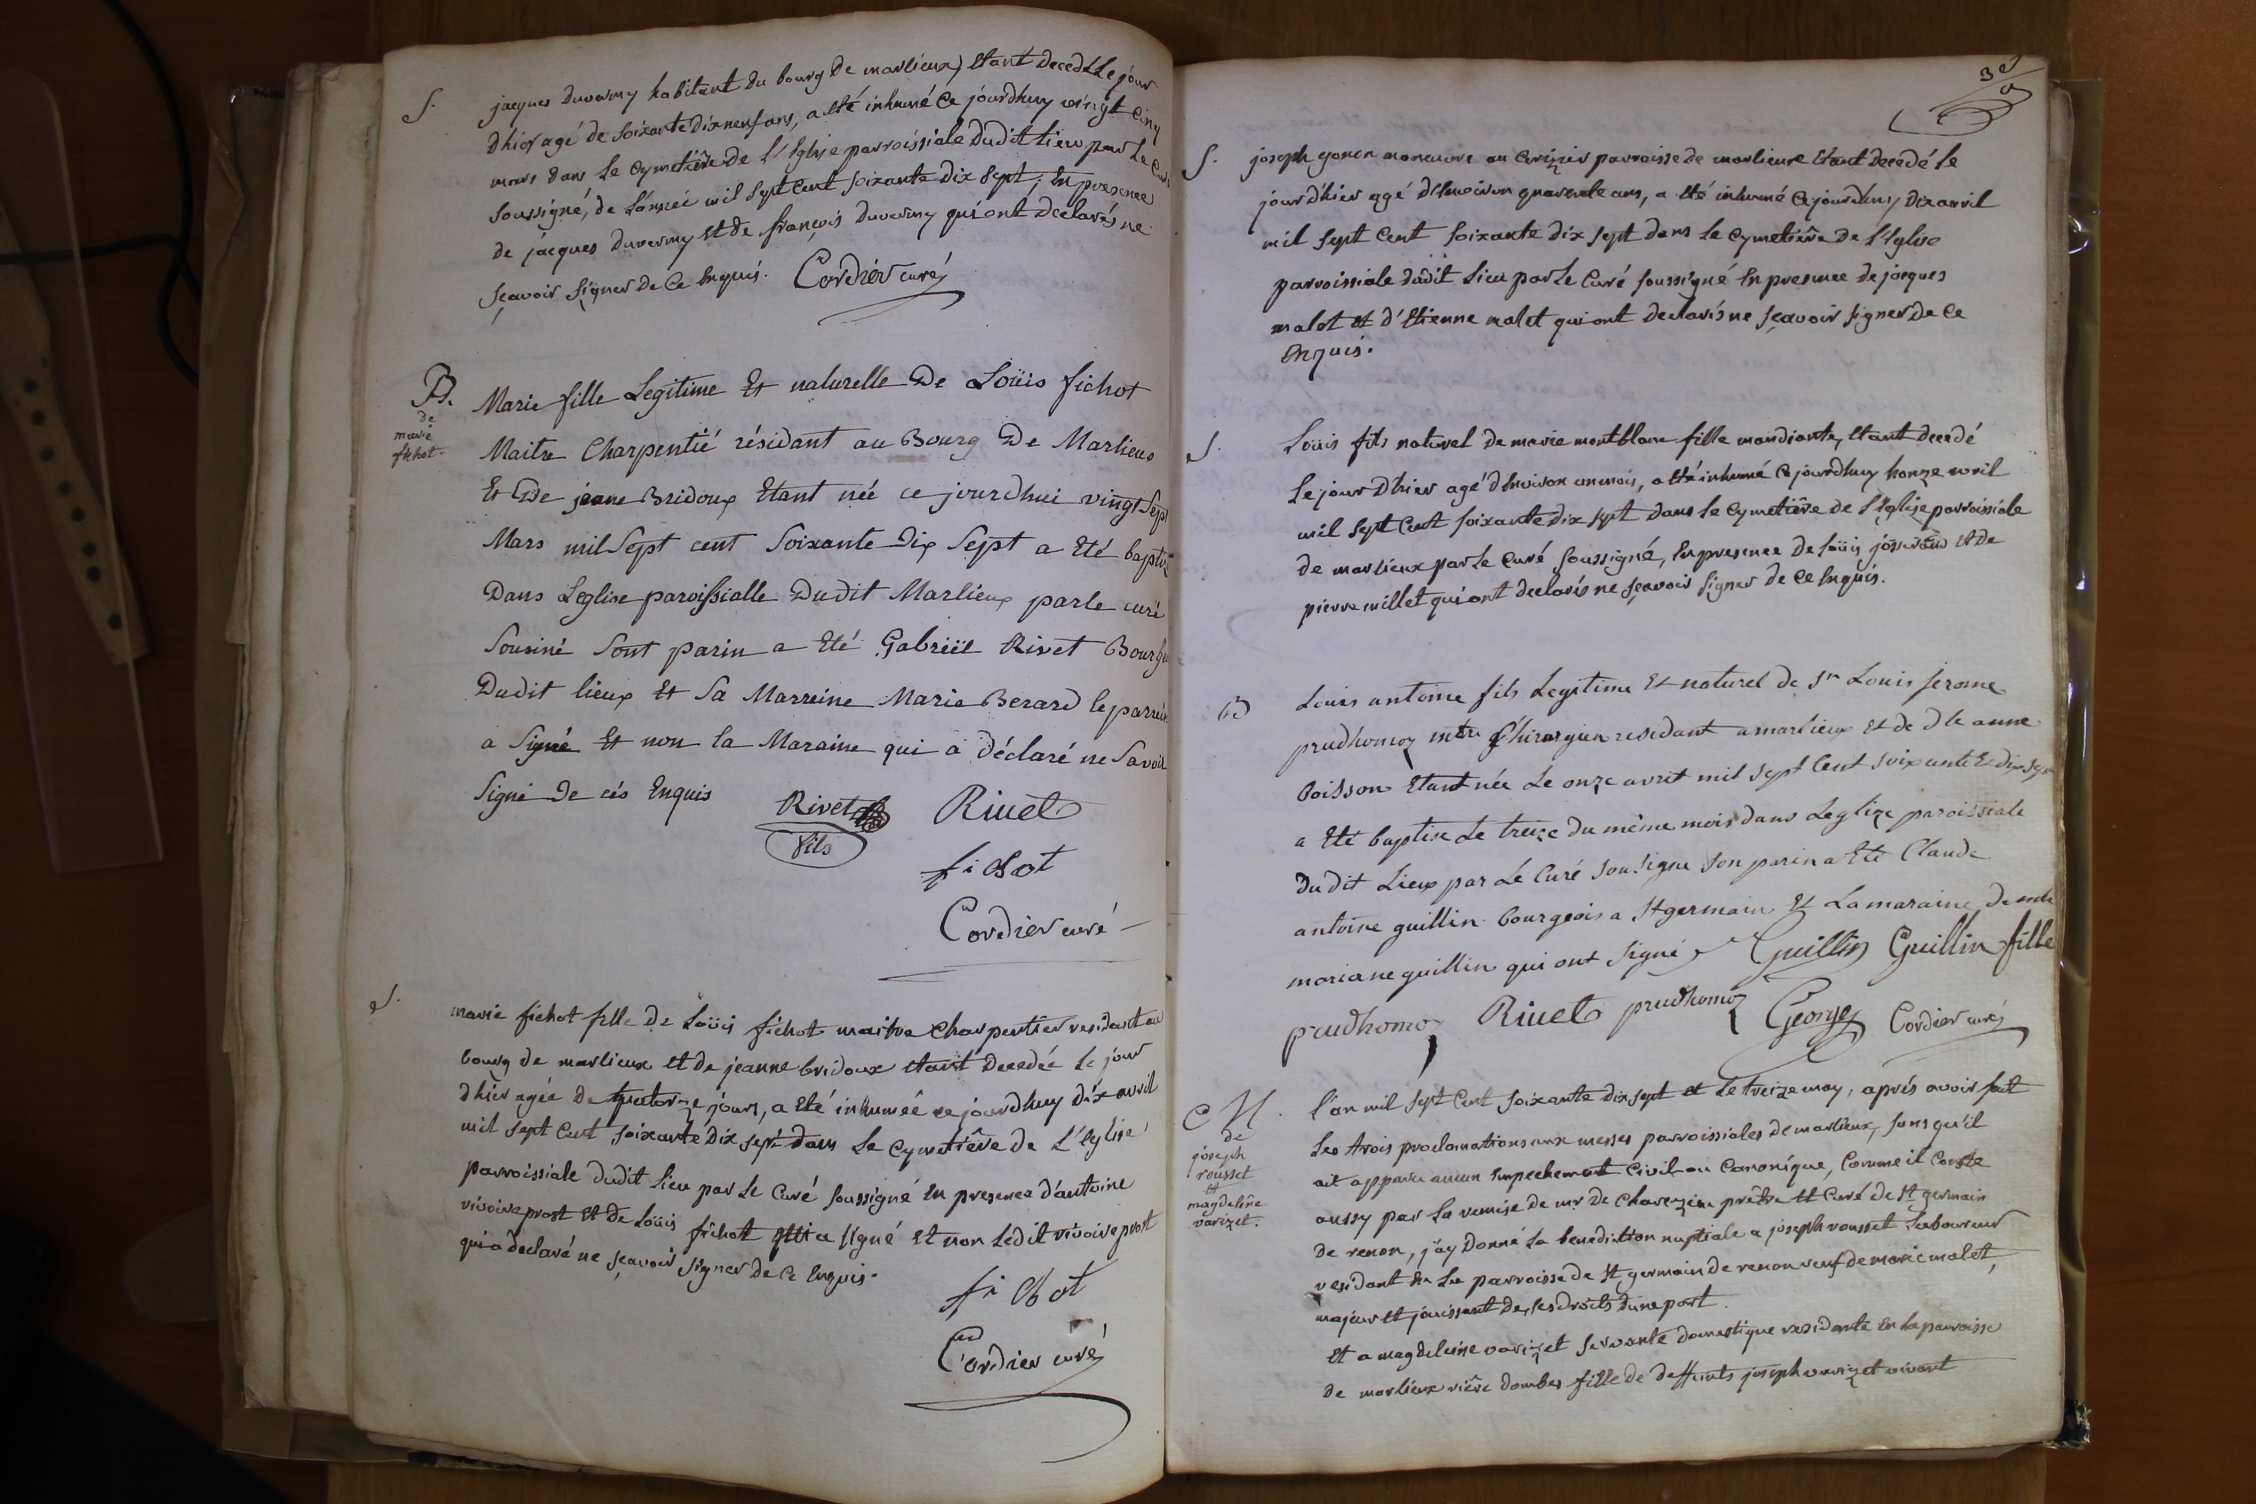 S.
jacques duverny habitant du bourg de marlieux, etant decedé le jour
d'hier agé de soixante dix neuf ans, a été inhumé ce jourdhuy vingt cinq
mars dans le cymetière de l'Eglise parroissiale dudit lieu par le curé
soussigné, de l'année mil sept cent soixante dix sept; en presence
de jacques duverny et de françois duverny qui ont declarés ne
sçavoir signer de ce enquis. Cordier curé
B.
de
marie
fichot.
Marie fille Legitime Et naturelle De Loüis fichot
Maitre Charpentié résidant au Bourg De Marlieux
Et De jeanne Bridoux Etant née ce jourdhui vingt Sept
Mars mil Sept cent Soixante Dix Sept a Eté baptiz
Dans Leglise paroissialle Dudit Marlieux parle curé
Sousiné Sont parin a Eté Gabriël Rivet Bourg
Dudit lieux Et Sa Marreine Marie Berard le parrein
a Signé Et non la Maraine qui a Déclaré ne Savoir
Signé De cés Enquis Rivet fils Rivet
fichot
Cordier curé
S.
marie fichot fille de Loüis fichot maitre charpentier residant au
bourg de marlieux et de jeanne bridoux etant decedée le jour
d'hier agée de quatorze jours, a été inhumée ce jourdhuy dix avril
mil sept cent soixante dix sept dans le cymetière de L'Eglise
parroissiale dudit lieu par le curé soussigné en presence d'antoine
vivoire prost et de Loüis fichot qui a signé et non ledit vivoire prost
qui a declaré ne sçavoir signer de ce enquis.
fichot
Cordier curé
S.
joseph gonen manœuvre au parroisse de marlieux etant decedé le
jour d'hier agé d'environ quarante ans, a été inhumé ce jourdhuy dix avril
mil sept cent soixante dix sept dans le cymetière de l'Eglise
parroissiale dudit lieu par le curé soussigné en presence de jacques
malet et d'Etienne malet qui ont declarés ne sçavoir signer de ce
enquis.
S.
Loüis fils naturel de marie montblanc fille mandiante, etant decedé
le jour d'hier agé d'environ un mois, a été inhumé ce jourdhuy honze avril
mil sept cent soixante dix sept dans le cymetière de l'Eglise parroissiale
de marlieux par le curé soussigné, en presence de Loüis josserand et de
pierre millet qui ont declarés ne sçavoir signer de ce enquis.
B
Louis antoine fils Legitime Et naturel de Sr Louis jerome
prudhomoz mtre Chirurgien residant a marlieux et de dlle anne
boisson Etant née Le onze avril mil sept Cent soixante Et dix sept
a Eté baptise Le treize du même mois dans Leglize paroissiale
dudit Lieux par Le Curé sousigne son parin a Eté Claude
antoine guillin bourgeois a St germain Et La maraine
mariane guillin qui ont signé Guillin Guillin fille
prudhomoz Rivet prudhomoz George Cordier curé
C M.
de
joseph
rousset
et
magdelene
varizet.
L'an mil sept cent soixante dix sept et le treize may, après avoir fait
les trois proclamations aux messes parroissiales de marlieux, sans qu'il
ait apparu aucun empechement civil ou canonique, comme il conste
aussy par la remise de mr de prêtre et curé de St germain
de renon, j'ay donné la benediction nuptiale a joseph rousset laboureur
residant en la parroisse de St germain de renon veuf de marie malet,
majeur et jouissant de ses droits d'une part.
Et a magdeleine varizet servante domestique residante en la parroisse
de marlieux rière dombes fille de deffunts joseph varizet vivant